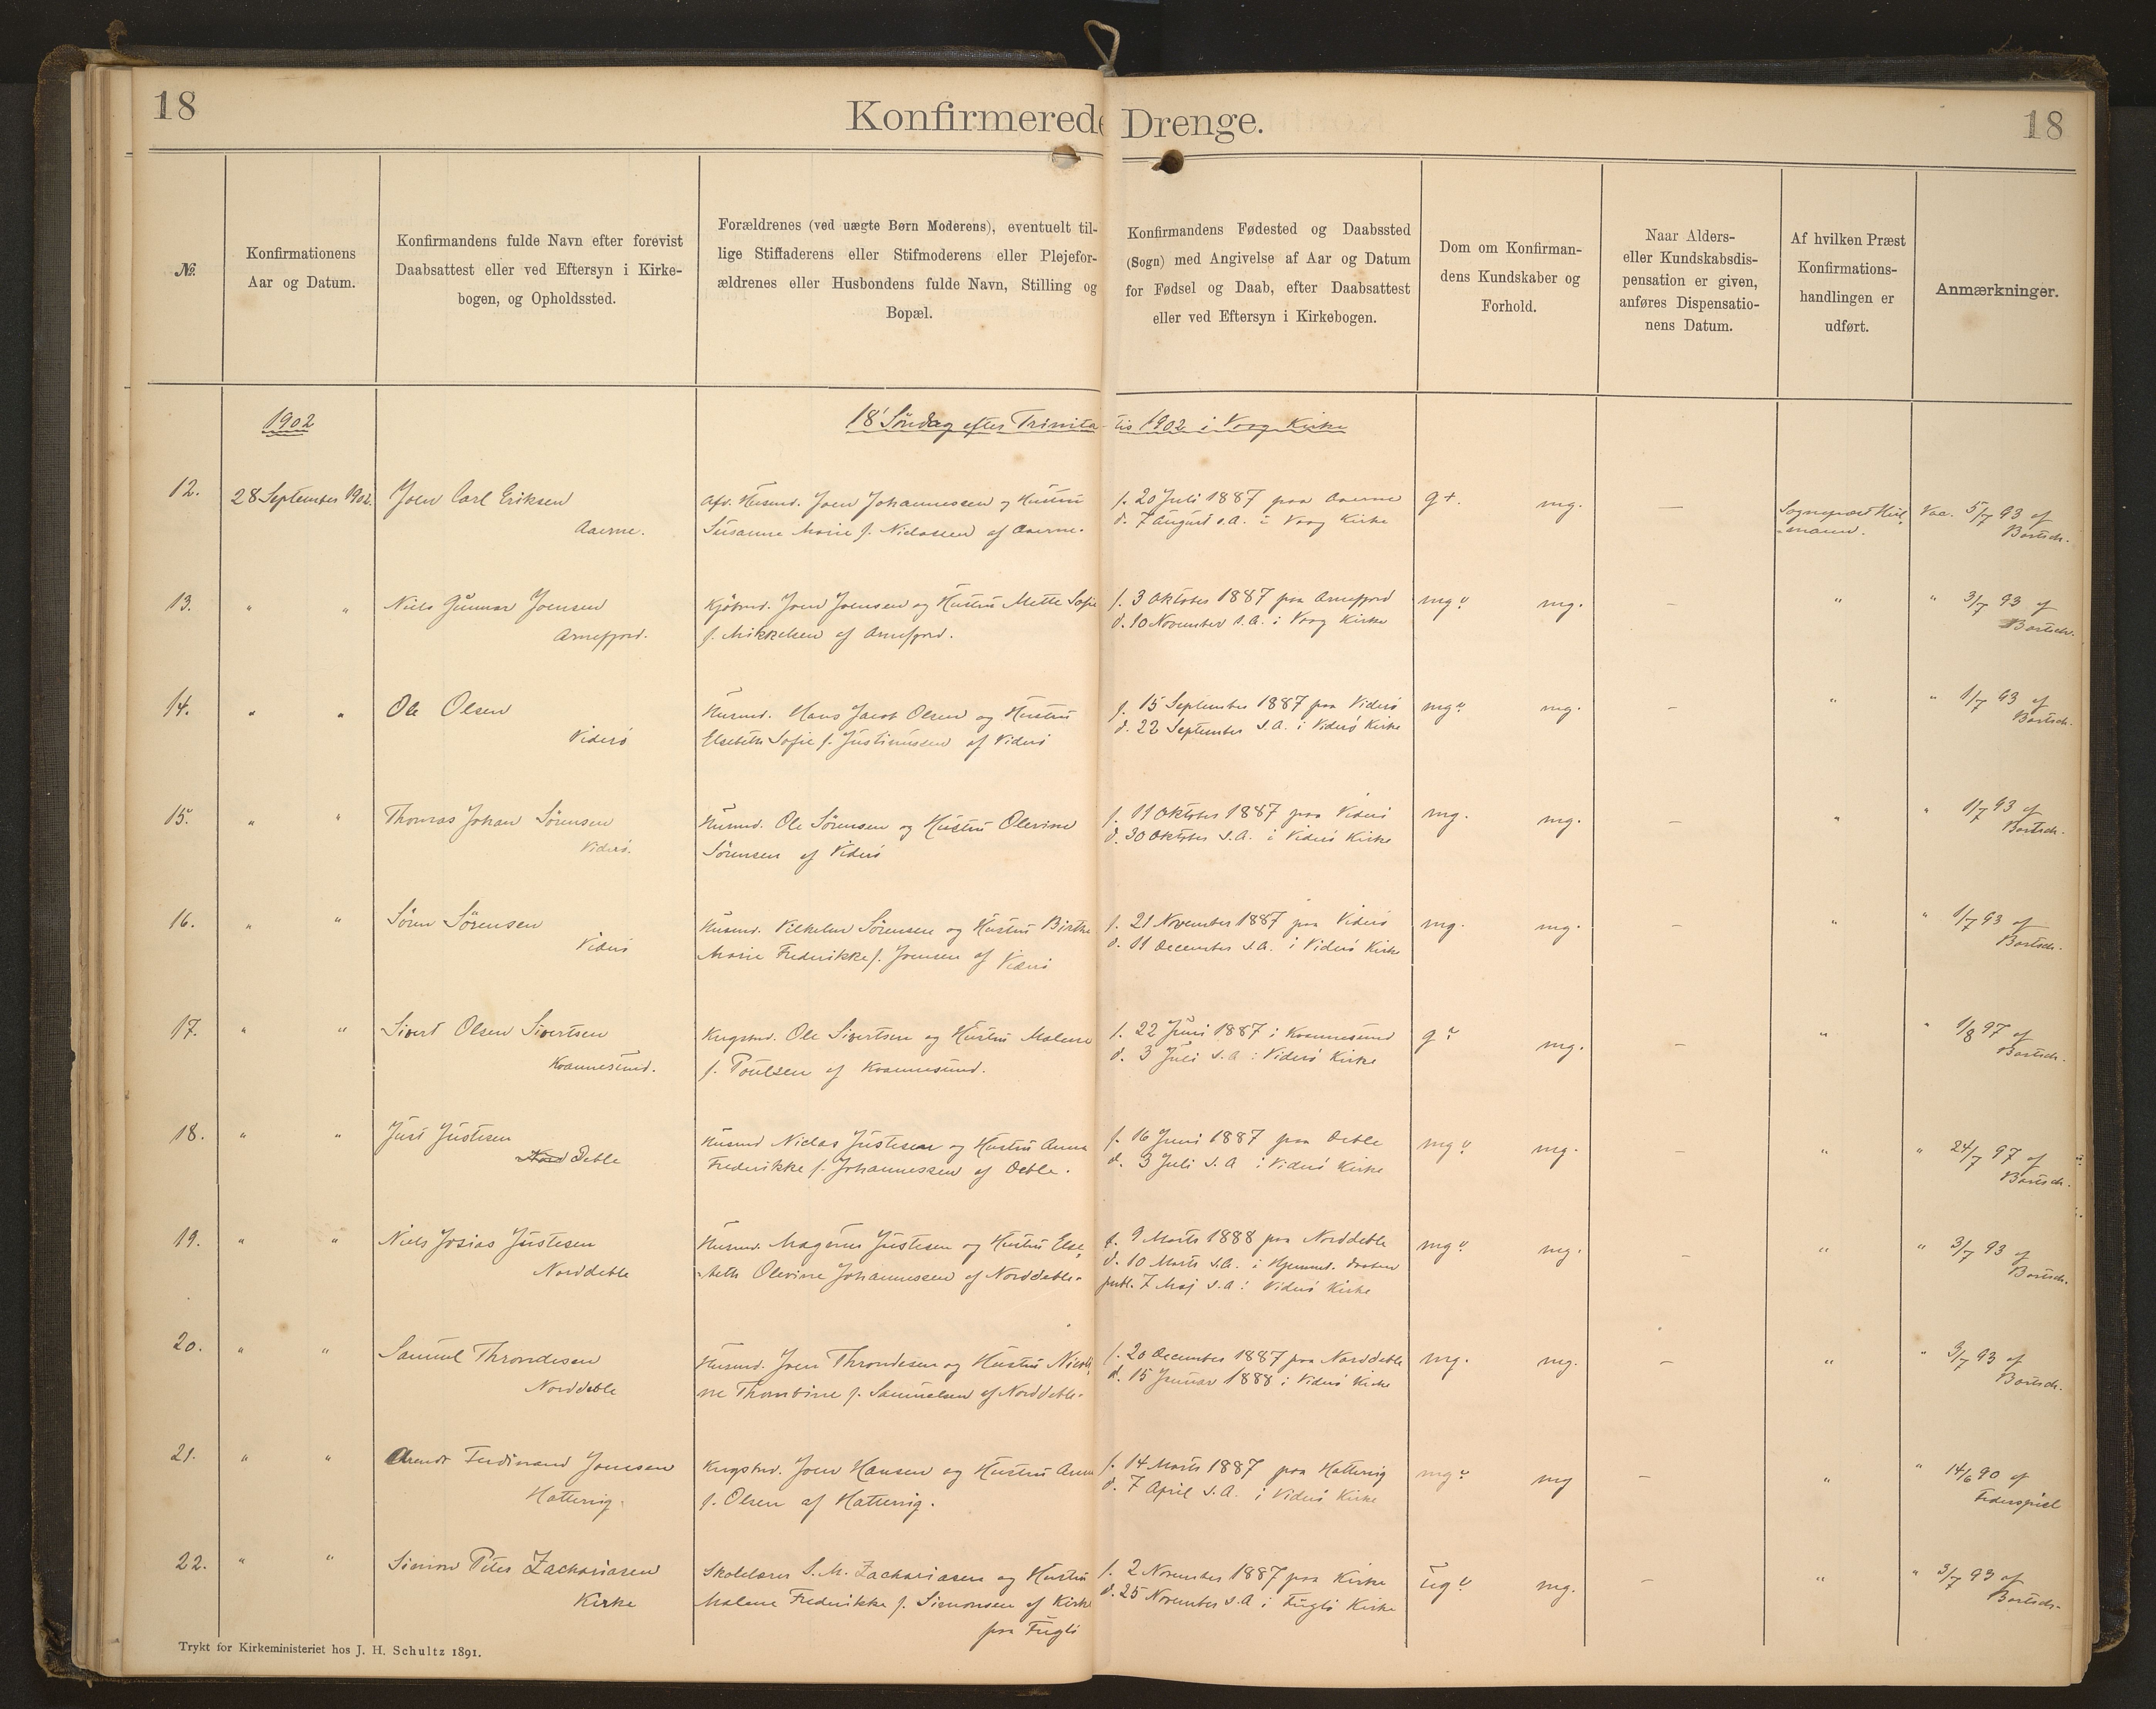 18
Konfirmerede Drenge.
18
№.
Konfirmationens
Aar og Datum.
Konfirmandens fulde Navn efter forevist
Daabsattest eller ved Eftersyn i Kirke-
bogen, og Opholdssted.
Forældrenes (ved uægte Børn Moderens), eventuelt til-
lige Stiffaderens eller Stifmoderens eller Plejefor-
ældrenes eller Husbondens fulde Navn, Stilling og
Bopæl.
Konfirmandens Fødested og Daabssted
(Sogn) med Angivelse af Aar og Datum
for Fødsel og Daab, efter Daabsattest
eller ved Eftersyn i Kirkebogen.
Dom om Konfirman-
dens Kundskaber og
Forhold.
Naar Alders-
eller Kundskabsdis-
pensation er given,
anføres Dispensatio-
nens Datum.
Af hvilken Præst
Konfirmations-
handlingen er
udført.
Anmærkninger.
1902
18' Søndag efter Trinita-tis 1902 i Vaag Kirke
12.
28 September 1902.
Joen Carl Eriksen
Aaerne.
Afd. Husmd. Joen Johannessen og Hustru
Susanne Marie f. Niclassen af Aaerne.
f. 20 Juli 1887 paa Aaerne
d. 7 August s.A. i Vaag Kirke
g+.
mg.
—
Sognepræst
Vac. 5/7 93 af
Bartsch.
13.
" "
Niels Gunnar Joensen
Arnefjord.
Kjøbmd. Joen Joensen og Hustru Mette Sofie
f. Mikkelsen af Arnefjord.
f. 3 Oktober 1887 paa Arnefjord
d. 10 November s.A. i Vaag Kirke
mg
mg.
—
"
" 3/7 93 af
Bartsch.
14.
" "
Ole Olsen
Viderø
Husmd. Hans Jacob Olsen og Hustru
Elsebeth Sofie f. Justinussen af Viderø
f. 15 September 1887 paa Viderø
d. 22 September s.A. i Viderø Kirke
mg
mg.
—
"
" 1/7 93 af
Bartsch.
15.
" "
Thomas Johan Sørensen
Viderø.
Husmd. Ole Sørensen og Hustru Olevine
Sørensen af Viderø
f. 11 Oktober 1887 paa Viderø
d. 30 Oktober s.A. i Viderø Kirke
mg.
mg.
—
"
" 1/7 93 af
Bartsch.
16.
" "
Søren Sørensen
Viderø
Husmd. Vilhelm Sørensen og Hustru Birthe
Marie Frederikke f. Joensen af Viderø
f. 21 November 1887 paa Viderø
d. 11 December s.A. i Viderø Kirke
mg.
mg.
—
"
" 1/7 93 af
Bartsch.
17.
" "
Sivert Olsen Sivertsen
Kvannesund.
Kngsbmd. Ole Sivertsen og Hustru Malene
f. Poulsen af Kvannesund.
f. 22 Juni 1887 i Kvannesund
d. 3 Juli s.A. i Viderø Kirke
g
mg.
—
"
" 1/8 97 af
Bartsch.
18.
" "
Just Justesen
Nord Deble
Husmd Niclas Justesen og Hustru Anna
Frederikke f. Johannessen af Deble.
f. 16 Juni 1887 paa Deble
d. 3 Juli s.A i Viderø Kirke
mg
mg.
—
"
" 24/7 97 af
Bartsch.
19.
" "
Niels Josias Justesen
Norddeble
Husmd. Magnus Justesen og Hustru Else-
beth Olevine Johannessen af Norddeble.
f. 9 Marts 1888 paa Norddeble
d. 10 Marts s.A. i Hjemmed. Daaben
publ. 7 Maj s.A. i Viderø Kirke
mg
mg.
—
"
" 3/7 93 af
Bartsch.
20.
" "
Samuel Throndesen
Norddeble
Husmd. Joen Throndesen og Hustru Nicoli-
ne Thomsine f. Samuelsen af Norddeble.
f. 20 December 1887 paa Norddeble
d. 15 Januar 1888 i Viderø Kirke
mg.
mg.
—
"
" 3/7 93 af
Bartsch.
21.
" "
Arendt Ferdinand Joensen
Hattervig.
Kngsbmd. Joen Hansen og Hustru Anna
f. Olsen af Hattervig.
f. 14 Marts 1887 paa Hattervig
d. 7 April s.A. i Viderø Kirke
mg
mg
—
"
" 14/6 90 af
Federspiel
22.
" "
Simon Peter Zachariasen
Kirke
Skolelærer S. M. Zachariasen og Hustru
Malene Frederikke f. Simonsen af Kirke
paa Fuglø
f. 2 November 1887 paa Kirke
d. 25 November s.A i Fuglø Kirke
ug
mg.
—
"
" 3/7 93 af
Bartsch.
Trykt for Kirkeministeriet hos J. H. Schultz 1891.